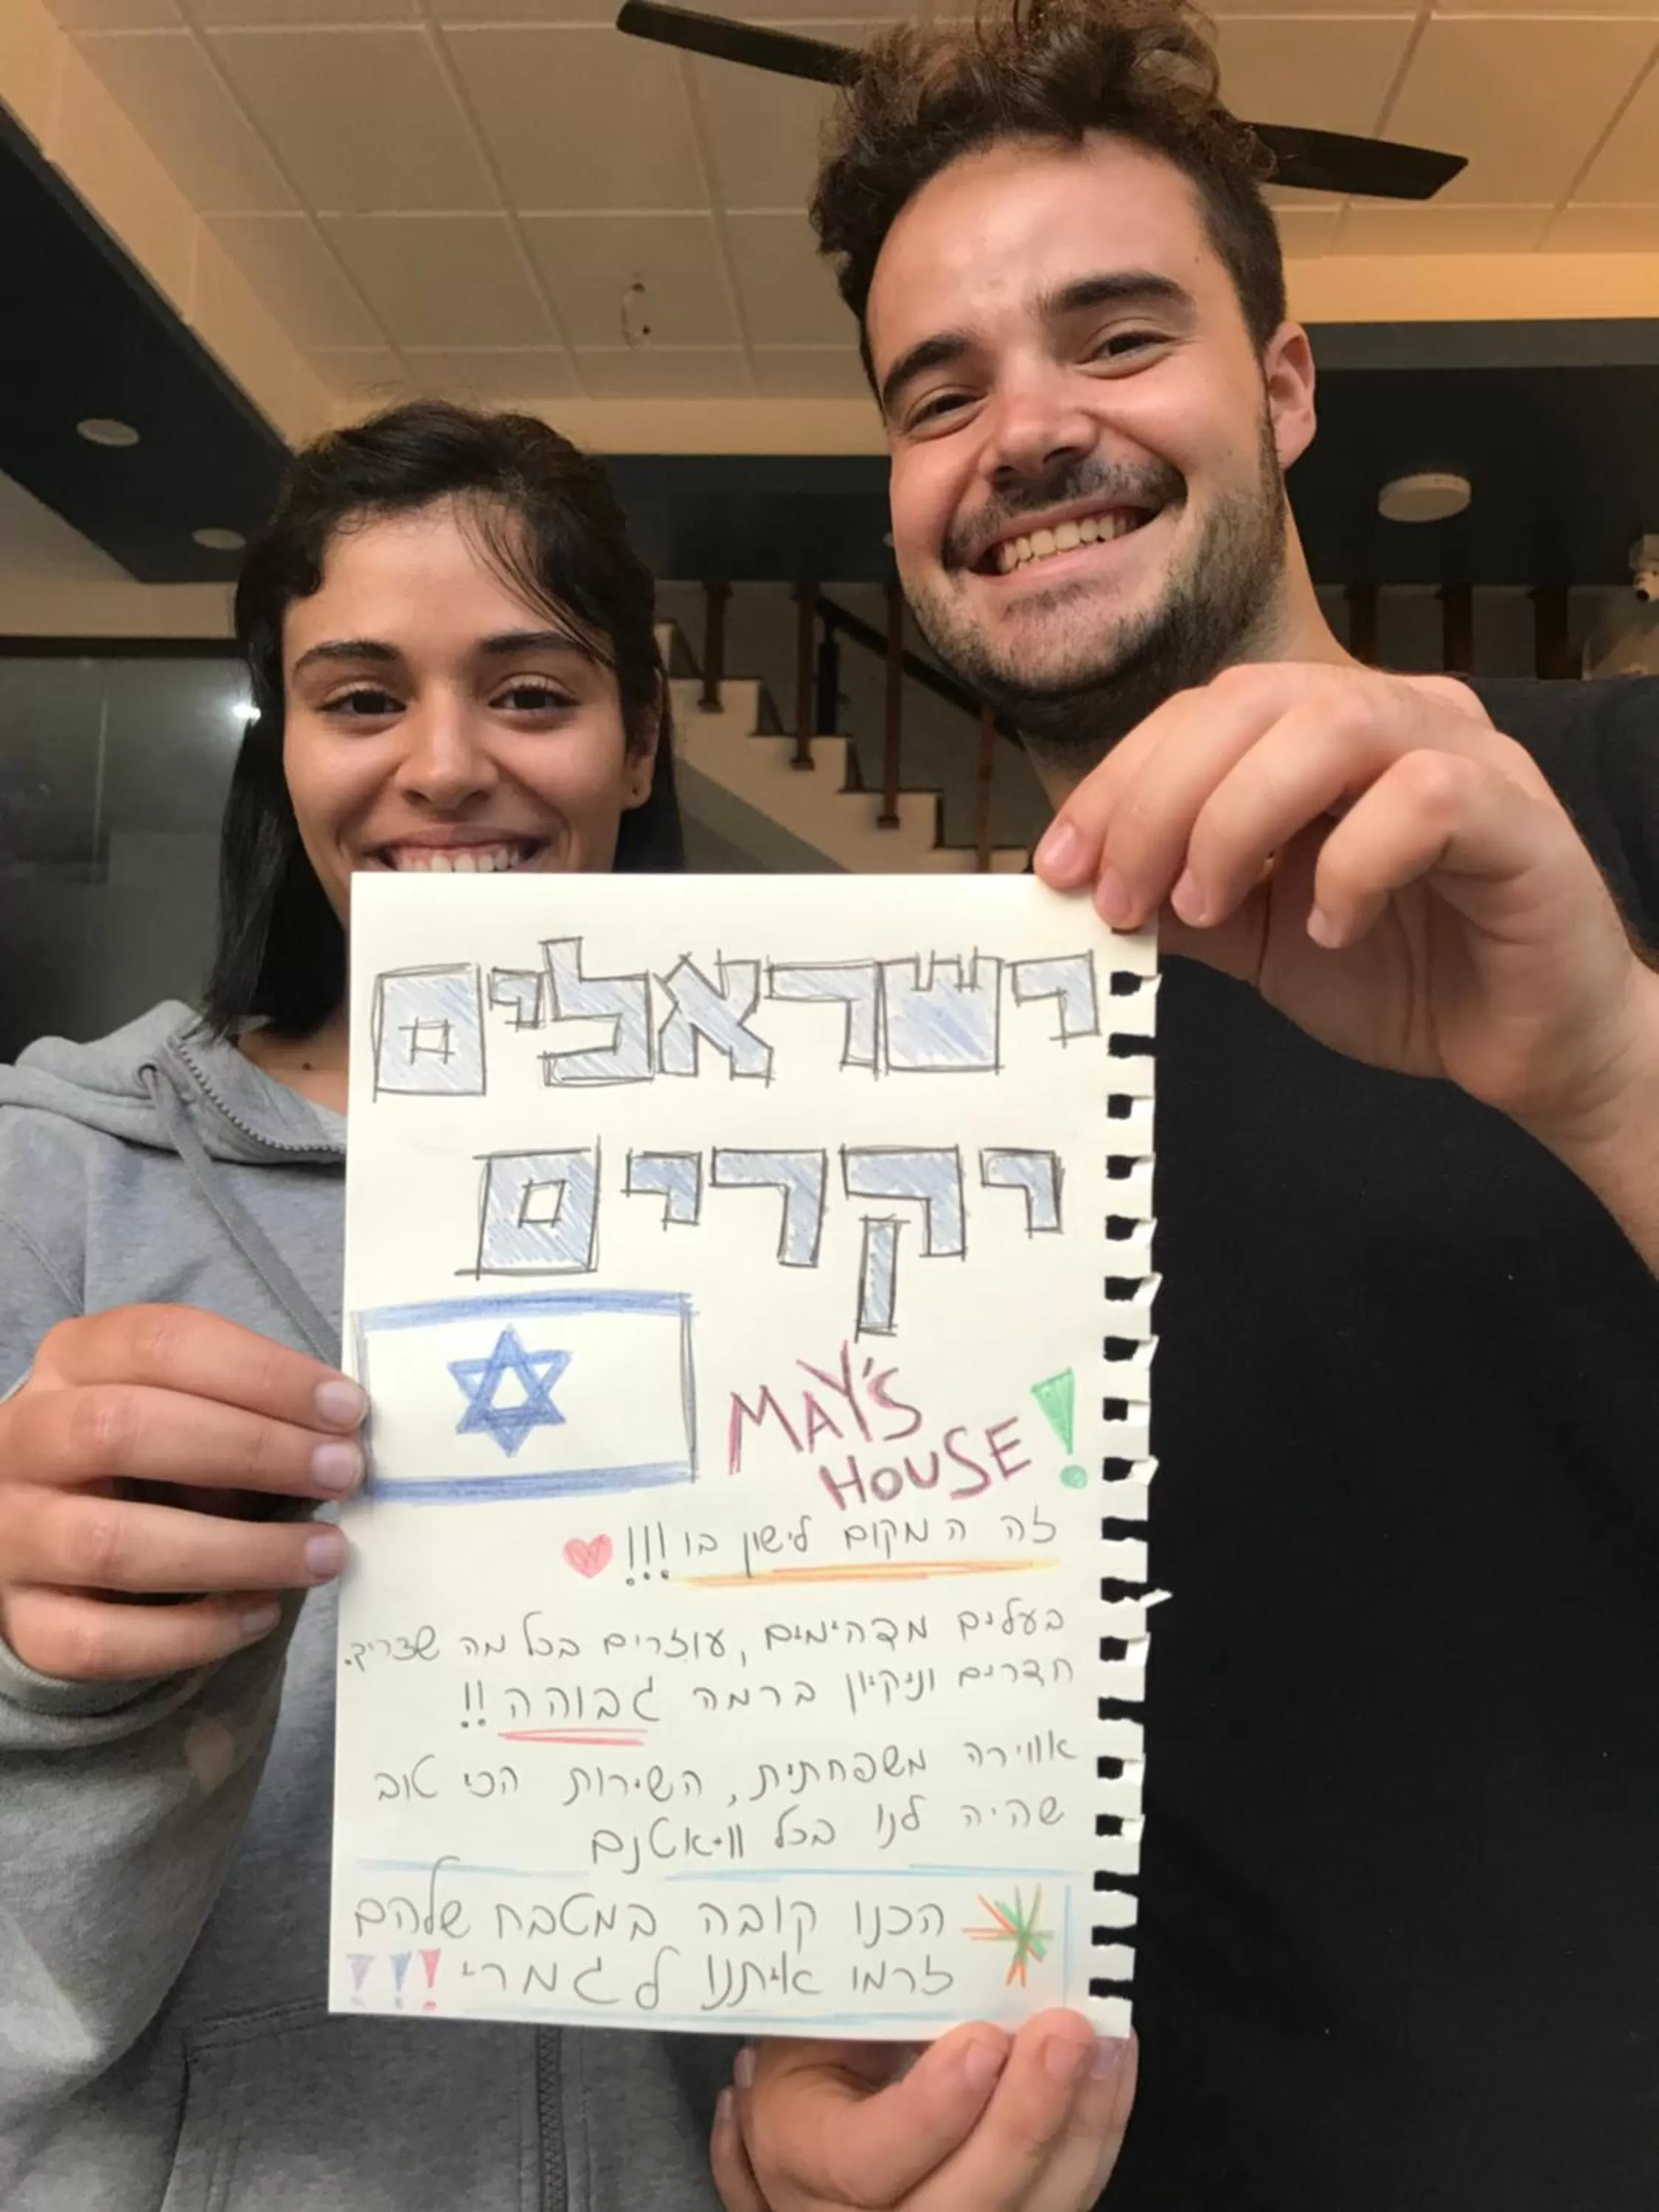 ישראלים
יקרים
MAY'S
HOUSE!
זה המקום לישון בו!!!
בעלים מדהימים, עוזרים בכל מה שצריך.
חדרים וניקיון ברמה גבוהה!!
אווירה משפחתית, השירות הכי טוב
שהיה לנו בכל וויאטנם
הכנו קובה במטבח שלהם
זרמו איתנו לגמרי!!!